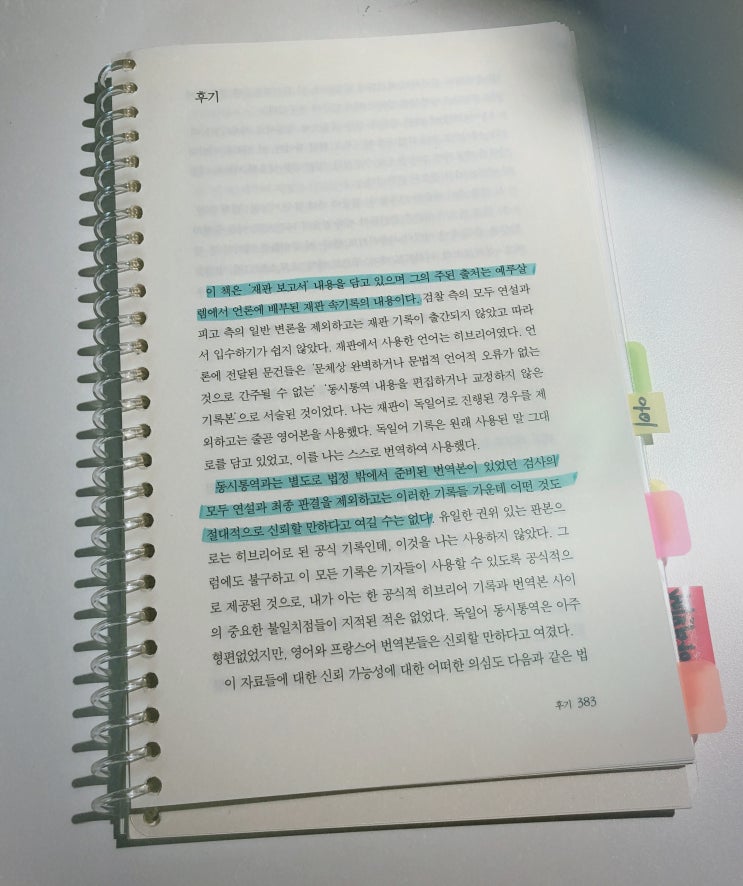 후기
이 책은 '재판 보고서' 내용을 담고 있으며 그의 주된 출처는 예루살
렘에서 언론에 배부된 재판 속기록의 내용이다. 검찰 측의 모두 연설과
피고 측의 일반 변론을 제외하고는 재판 기록이 출간되지 않았고 따라
서 입수하기가 쉽지 않았다. 재판에서 사용한 언어는 히브리어였다. 언
론에 전달된 문건들은 '문체상 완벽하거나 문법적 언어적 오류가 없는
것으로 간주될 수 없는' '동시통역 내용을 편집하거나 교정하지 않은
기록본'으로 서술된 것이었다. 나는 재판이 독일어로 진행된 경우를 제
외하고는 줄곧 영어본을 사용했다. 독일어 기록은 원래 사용된 말 그대
로를 담고 있었고, 이를 나는 스스로 번역하여 사용했다.
동시통역과는 별도로 법정 밖에서 준비된 번역본이 있었던 검사의
모두 연설과 최종 판결을 제외하고는 이러한 기록들 가운데 어떤 것도
절대적으로 신뢰할 만하다고 여길 수는 없다. 유일한 권위 있는 판본으
로는 히브리어로 된 공식 기록인데, 이것을 나는 사용하지 않았다. 그
럼에도 불구하고 이 모든 기록은 기자들이 사용할 수 있도록 공식적으
로 제공된 것으로, 내가 아는 한 공식적 히브리어 기록과 번역본 사이
의 중요한 불일치점들이 지적된 적은 없었다. 독일어 동시통역은 아주
형편없었지만, 영어와 프랑스어 번역본들은 신뢰할 만하다고 여겼다.
이 자료들에 대한 신뢰 가능성에 대한 어떠한 의심도 다음과 같은 법
후기 383